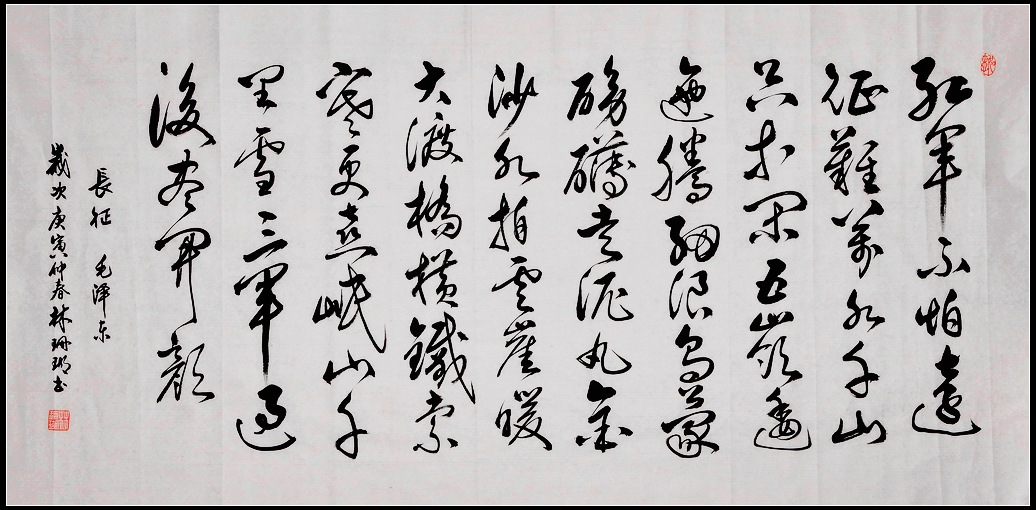 紅軍不怕遠
征難萬水千山
只等閑五嶺逶
迤騰細浪烏蒙
磅礴走泥丸金
沙水拍雲崖暖
大渡橋橫鐵索
寒更喜岷山千
里雪三軍過
後盡開顏
長征 毛澤東
歲次庚寅仲春林珊瑚書